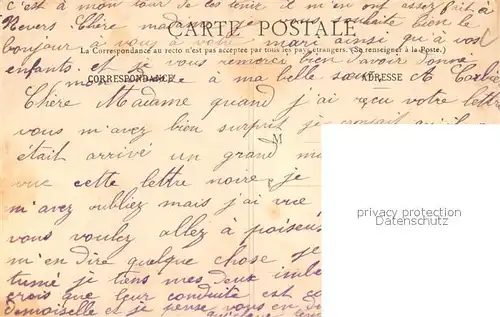 c'est à mon tour de les tenir il m'en ont assez fait à
Nevers. Chère madame je vous souhaite bien le
CARTE POSTALE
bonjour à vous à votre mari ainsi qu'à vos
La Correspondance au recto n'est pas acceptée par tous les pays étrangers. (Se renseigner à la Poste.)
enfants. et je vous remerci bien d'avoir donné
CORRESPONDANCE
ADRESSE
mon à ma belle sœur A
Chère Madame quand j'ai reçu votre lettre
vous m'avez bien surprit je
M
était arrivé un grand
vue cette lettre noire je
m'avez oubliez mais j'ai vue
vous voulez allez à
m'en dire quelque chose je
tumé je tiens mes deux
crois que leur conduite est
demoiselle et je pense vous en
privacy protection
Datenschutz